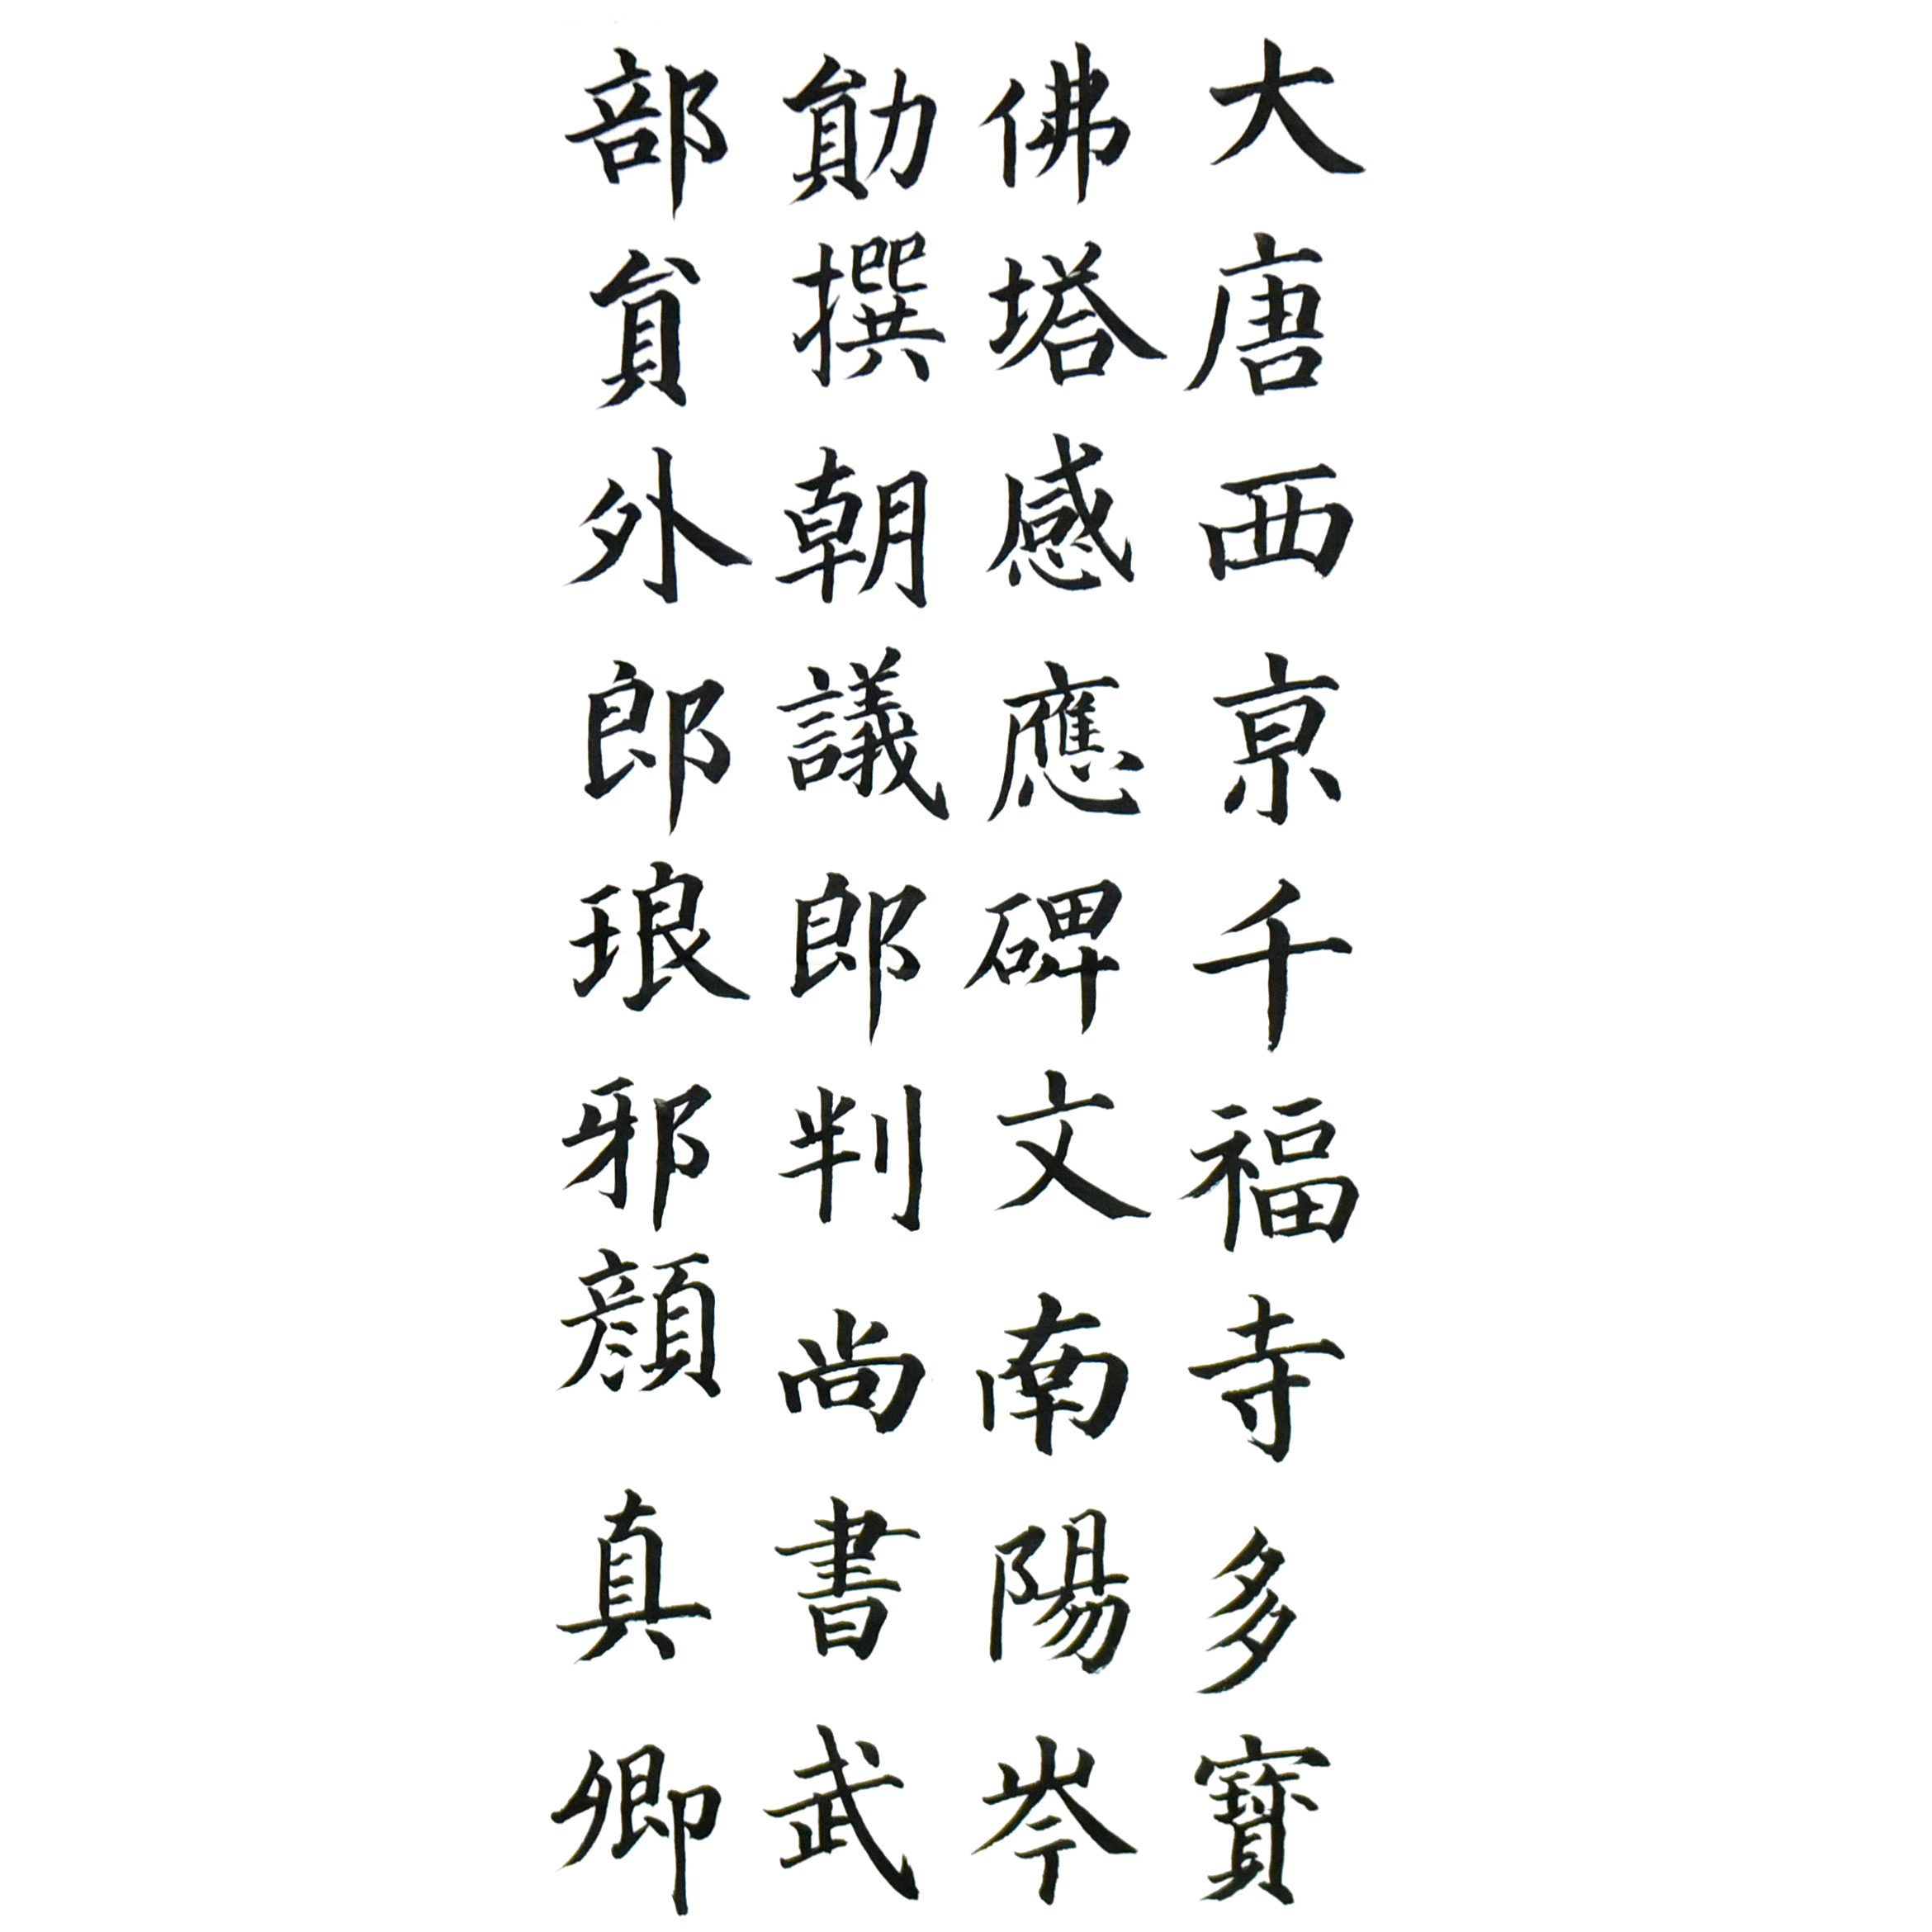 大唐西京千福寺多寶
佛塔感應碑文南陽岑
勛撰朝議郎判尚書武
部員外郎琅邪顏真卿